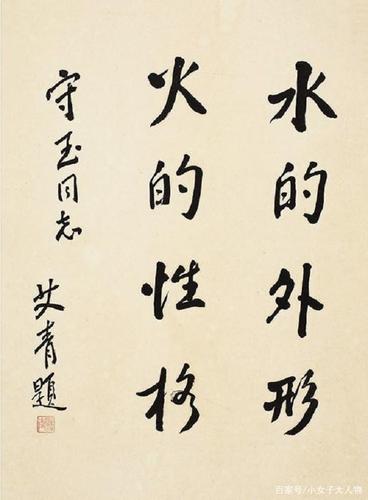 水的外形
火的性格
守玉同志
艾青题
百家号/小女子大人物